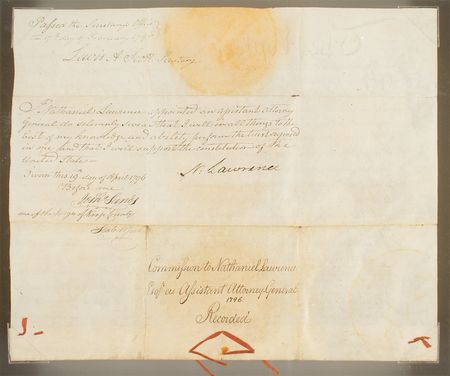 Passed the Secretary's Office
day of February 1796
Lewis A. Scott, Secretary
I Nathaniel Lawrence appointed an assistant Attorney
General do solemnly swear that I will in all things to the
best of my knowledge and ability perform the trust reposed
in me and that I will support the constitution of the
United States
N. Lawrence
Sworn this 19th day of April 1796
Before me
one of the Judges of Kings County
Commission to Nathaniel Lawrence
Esqr as Assistant Attorney General
1796
Recorded